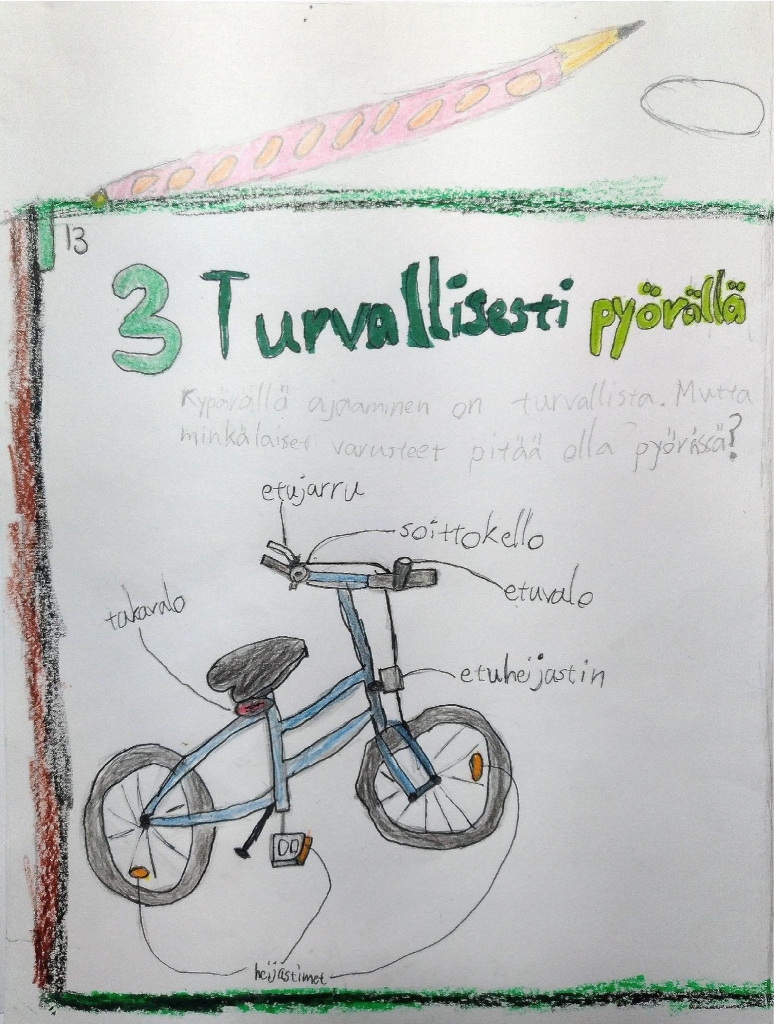 13
3 Turvallisesti pyörällä
Kypärällä ajaaminen on turvallista. Mutta
minkälaiset varusteet pitää olla pyörässä?
etujarru
soittokello
etuvalo
takavalo
etuheijastin
heijastimet